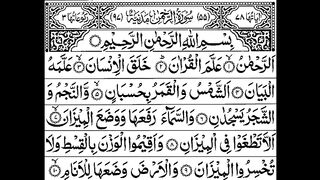 اٰيَاتُهَا ٧٨ (٥٥) سُوْرَةُ الرَّحْمٰنِ مَدَنِيَّةٌ (٩٧) رُكُوْعَاتُهَا ٣
بِسْمِ اللّٰهِ الرَّحْمٰنِ الرَّحِيْمِ
اَلرَّحْمٰنُ ۙ١ عَلَّمَ الْقُرْاٰنَ ؕ٢ خَلَقَ الْاِنْسَانَ ۙ٣ عَلَّمَهُ
الْبَيَانَ ٤ اَلشَّمْسُ وَالْقَمَرُ بِحُسْبَانٍ ۙ٥ وَّالنَّجْمُ وَ
الشَّجَرُ يَسْجُدٰنِ ٦ وَالسَّمَآءَ رَفَعَهَا وَوَضَعَ الْمِيْزَانَ ۙ٧
اَلَّا تَطْغَوْا فِى الْمِيْزَانِ ٨ وَاَقِيْمُوا الْوَزْنَ بِالْقِسْطِ وَلَا
تُخْسِرُوا الْمِيْزَانَ ٩ وَالْاَرْضَ وَضَعَهَا لِلْاَنَامِ ۙ١٠